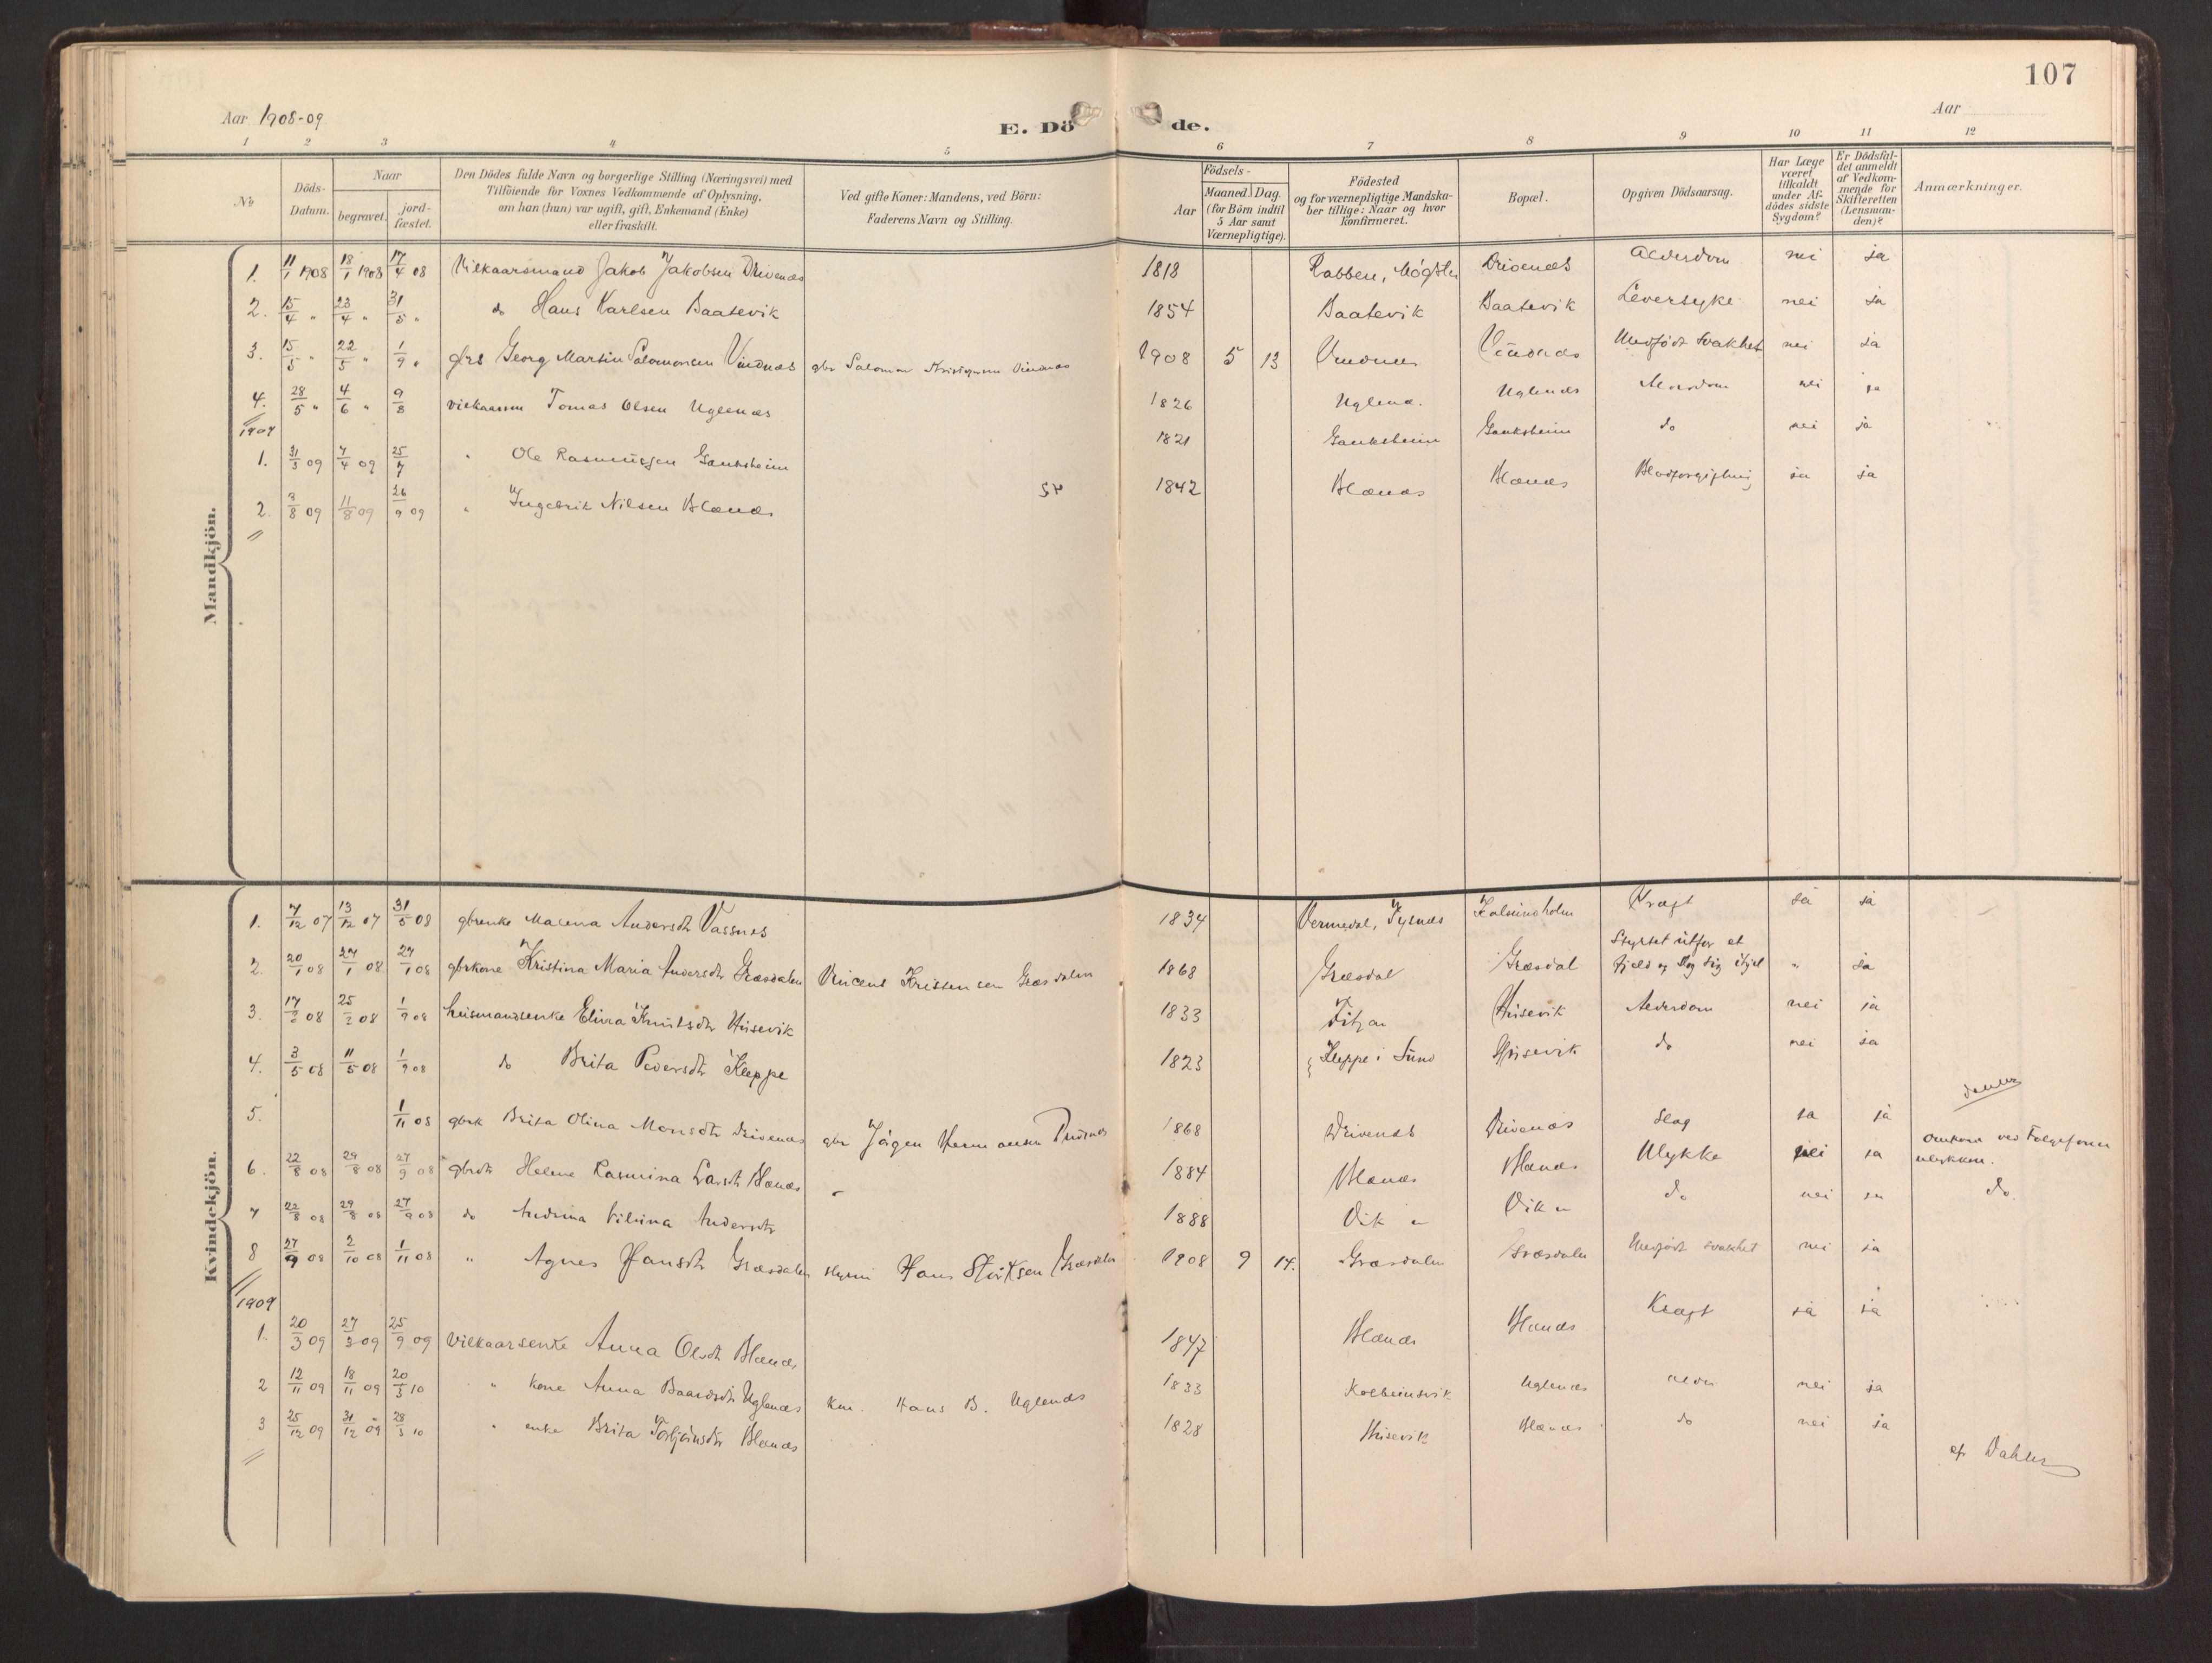 107
Aar 1908-09
E. Dö de.
Aar
1 2 3 4 5 6 7 8 9 10 11 12
No
Döds-Datum.
Naar
begravet.
jord-fæstet.
Den Dödes fulde Navn og borgerlige Stilling (Næringsvei) med
Tilföiende for Voxnes Vedkommende af Oplysning,
om han (hun) var ugift, gift, Enkemand (Enke)
eller fraskilt.
Ved gifte Koner: Mandens, ved Börn:
Faderens Navn og Stilling.
Födsels-
Aar
Maaned. Dag.
(for Börn indtil
5 Aar samt
Værnepligtige).
Födested
og for værnepligtige Mandska-
ber tillige: Naar og hvor
konfirmeret.
Bopæl.
Opgiven Dödsaarsag.
Har Læge
været
tilkaldt
under Af-
dödes sidste
Sygdom?
Er Dödsfal-
det anmeldt
af Vedkom-
mende for
Skifteretten
(Lensman-
den)?
Anmærkninger.
Mandkjön.
1. 11/1 1908 18/1 1908 17/4 08 Vilkaarsmand Jakob Jakobsen Drivenæs 1818 Rabben, Møgster Drivenæs Alderdom nei ja
2. 15/4 " 23/4 " 31/5 " do Hans Karlsen Baatevik 1854 Baatevik Baatevik Leversyke nei ja
3. 15/5 " 22/5 " 1/9 " gbrs Georg Martin Salomonsen Vindnæs gbr Salomon Kristensen Vindnæs 1908 5 13 Vindnæs Vindnæs Medfødt Svakhet nei ja
4. 28/5 " 4/6 " 9/8 Vilkaarsm Tomas Olsen Uglenæs 1826 Uglenæ. Uglenæs Alderdom nei ja
1909
1. 31/3 09 7/4 09 25/7 " Ole Rasmussen Gauksheim 1821 Gauksheim Gauksheim do nei ja
2. 3/8 09 11/8 09 26/9 09 " Ingebrit Nilsen Blænæs 1842 Blænæs Blænæs Blodforgiftning ja ja
Kvindekjön.
1. 7/12 07 13/12 07 31/5 08 gbrenke Malena Andersdtr Vassnes 1834 Vermedal, Tysnæs Kolbeinsholm Kræft ja ja
2. 20/1 08 27/1 08 27/1 08 gbrkone Kristina Maria Andersdtr Græsdalen Vincent Kristensen Græsdalen 1868 Græsdal Græsdal Styrtet utfor et
fjeld og slog sig ihjel " ja
3. 17/2 08 25/2 08 1/9 08 husmandsenke Elina Knutsdtr Husevik 1833 Fitjar Husevik Alderdom nei ja
4. 3/5 08 11/5 08 1/9 08 do Brita Pedersdtr Kleppe 1823 Kleppe i Sund Husevik do nei ja
Dahler
5. 1/11 08 gbrk Brita Olina Monsdtr Drivenæs gbr Jørgen Hermansen Drivenæs 1868 Drivenæs Drivenæs Slag ja ja
6. 22/8 08 29/8 08 27/9 08 gbrdtr Helene Rasmina Larsdtr Blænæs " 1884 Blænæs Blænæs Ulykke nei ja Omkom ved Folgefonn
ulykken.
7 22/8 08 29/8 08 27/9 08 do Andrina Vilhina Andersdtr 1888 Vik Vik do nei ja do.
8 27/9 08 2/10 08 1/11 08 " Agnes Hansdtr Græsdalen Hans Størksen Græsdalen 1908 9 14. Græsdalen Græsdalen Medfødt svakhet nei ja
1909
1. 20/3 09 27/3 09 25/9 09 Vilkaarsenke Anna Olsdtr Blænæs 1847 Blænæs Blænæs Kræft ja ja
2 12/11 09 18/11 09 20/3 10 " kone Anna Baardsdtr Uglenæs Km. Hans B. Uglenæs 1833 Kolbeinsvik Uglenæs alder nei ja
3 25/12 09 31/12 09 28/3 10 " enke Brita Torbjørnsdtr Blænæs 1828 Husevik Blænæs do nei ja
ef Dahler